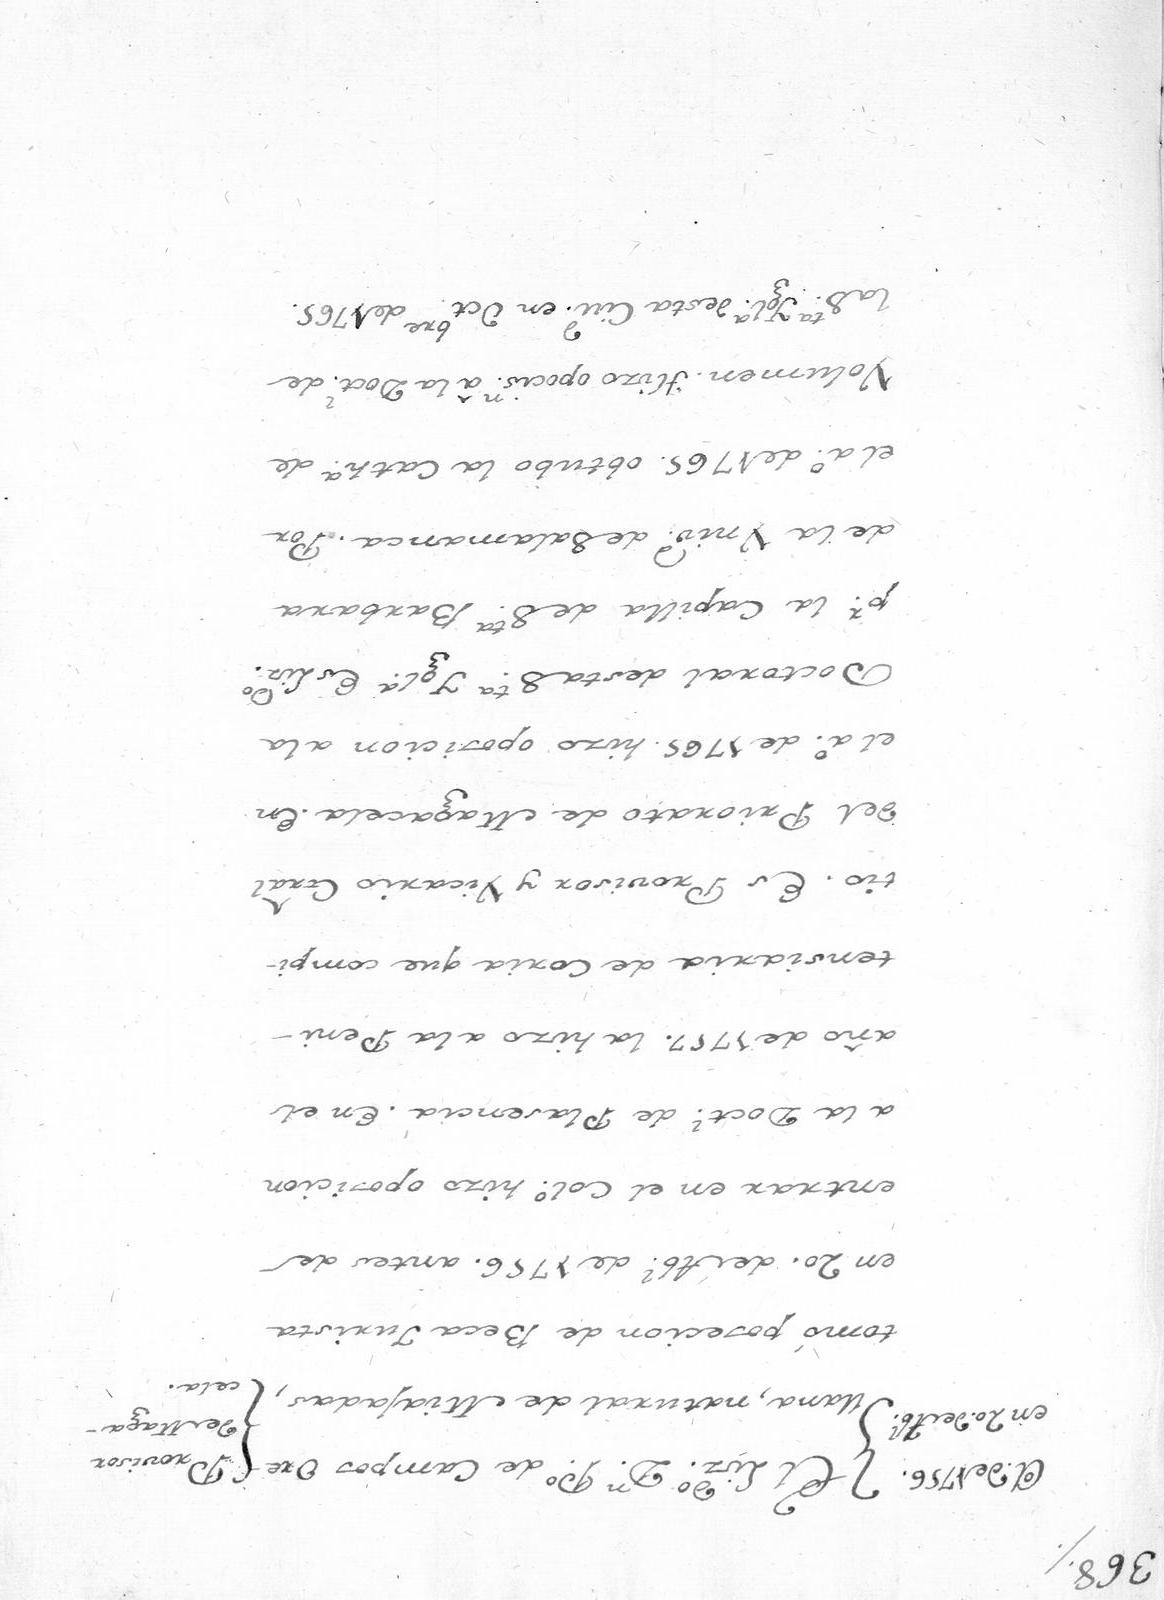 368./
A. de 1756. } El Liz.do D.n P.o de Campos Ore { Provisor
en 20. de Ab.l } llana, natural de Miajadas, { de Maga-
cela.
tomó posecion de Beca Jurista
en 20. de Ab.l de 1756. antes de
entrar en el Col.o hizo oposicion
a la Doct.l de Plasencia. En el
año de 1757. la hizo a la Peni-
tensiaria de Coria que compi-
tio. Es Provisor y Vicario Gral
del Priorato de Magacela. En
el a.o de 1765. hizo oposicion a la
Doctoral desta S.ta Igl.a Es Liz.do
p.r la Capilla de S.ta Barbara
de la Vniv.d de Salamanca. Por
el a.o de 1765. obtubo la Cath.a de
Volumen. Hizo opocis.n â la Doct.l de
la S.ta Igl.a desta Ciu.d en Oct.bre de 1765.